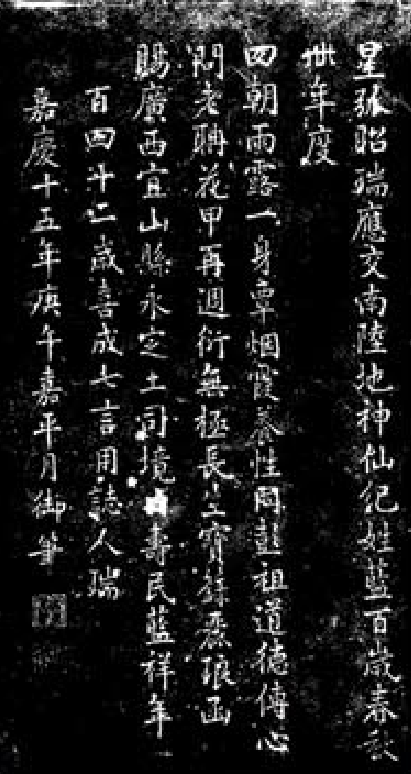 星弧昭瑞應交南陸地神仙紀姓藍百歲春秋
卌年度
四朝雨露一身覃烟霞養性同彭祖道德傳心
問老聃花甲再週衍無極長生寶籙麗琅函
賜廣西宜山縣永定土司境內壽民藍祥年
百四十二歲喜成七言用誌人瑞
嘉慶十五年庚午嘉平月御筆